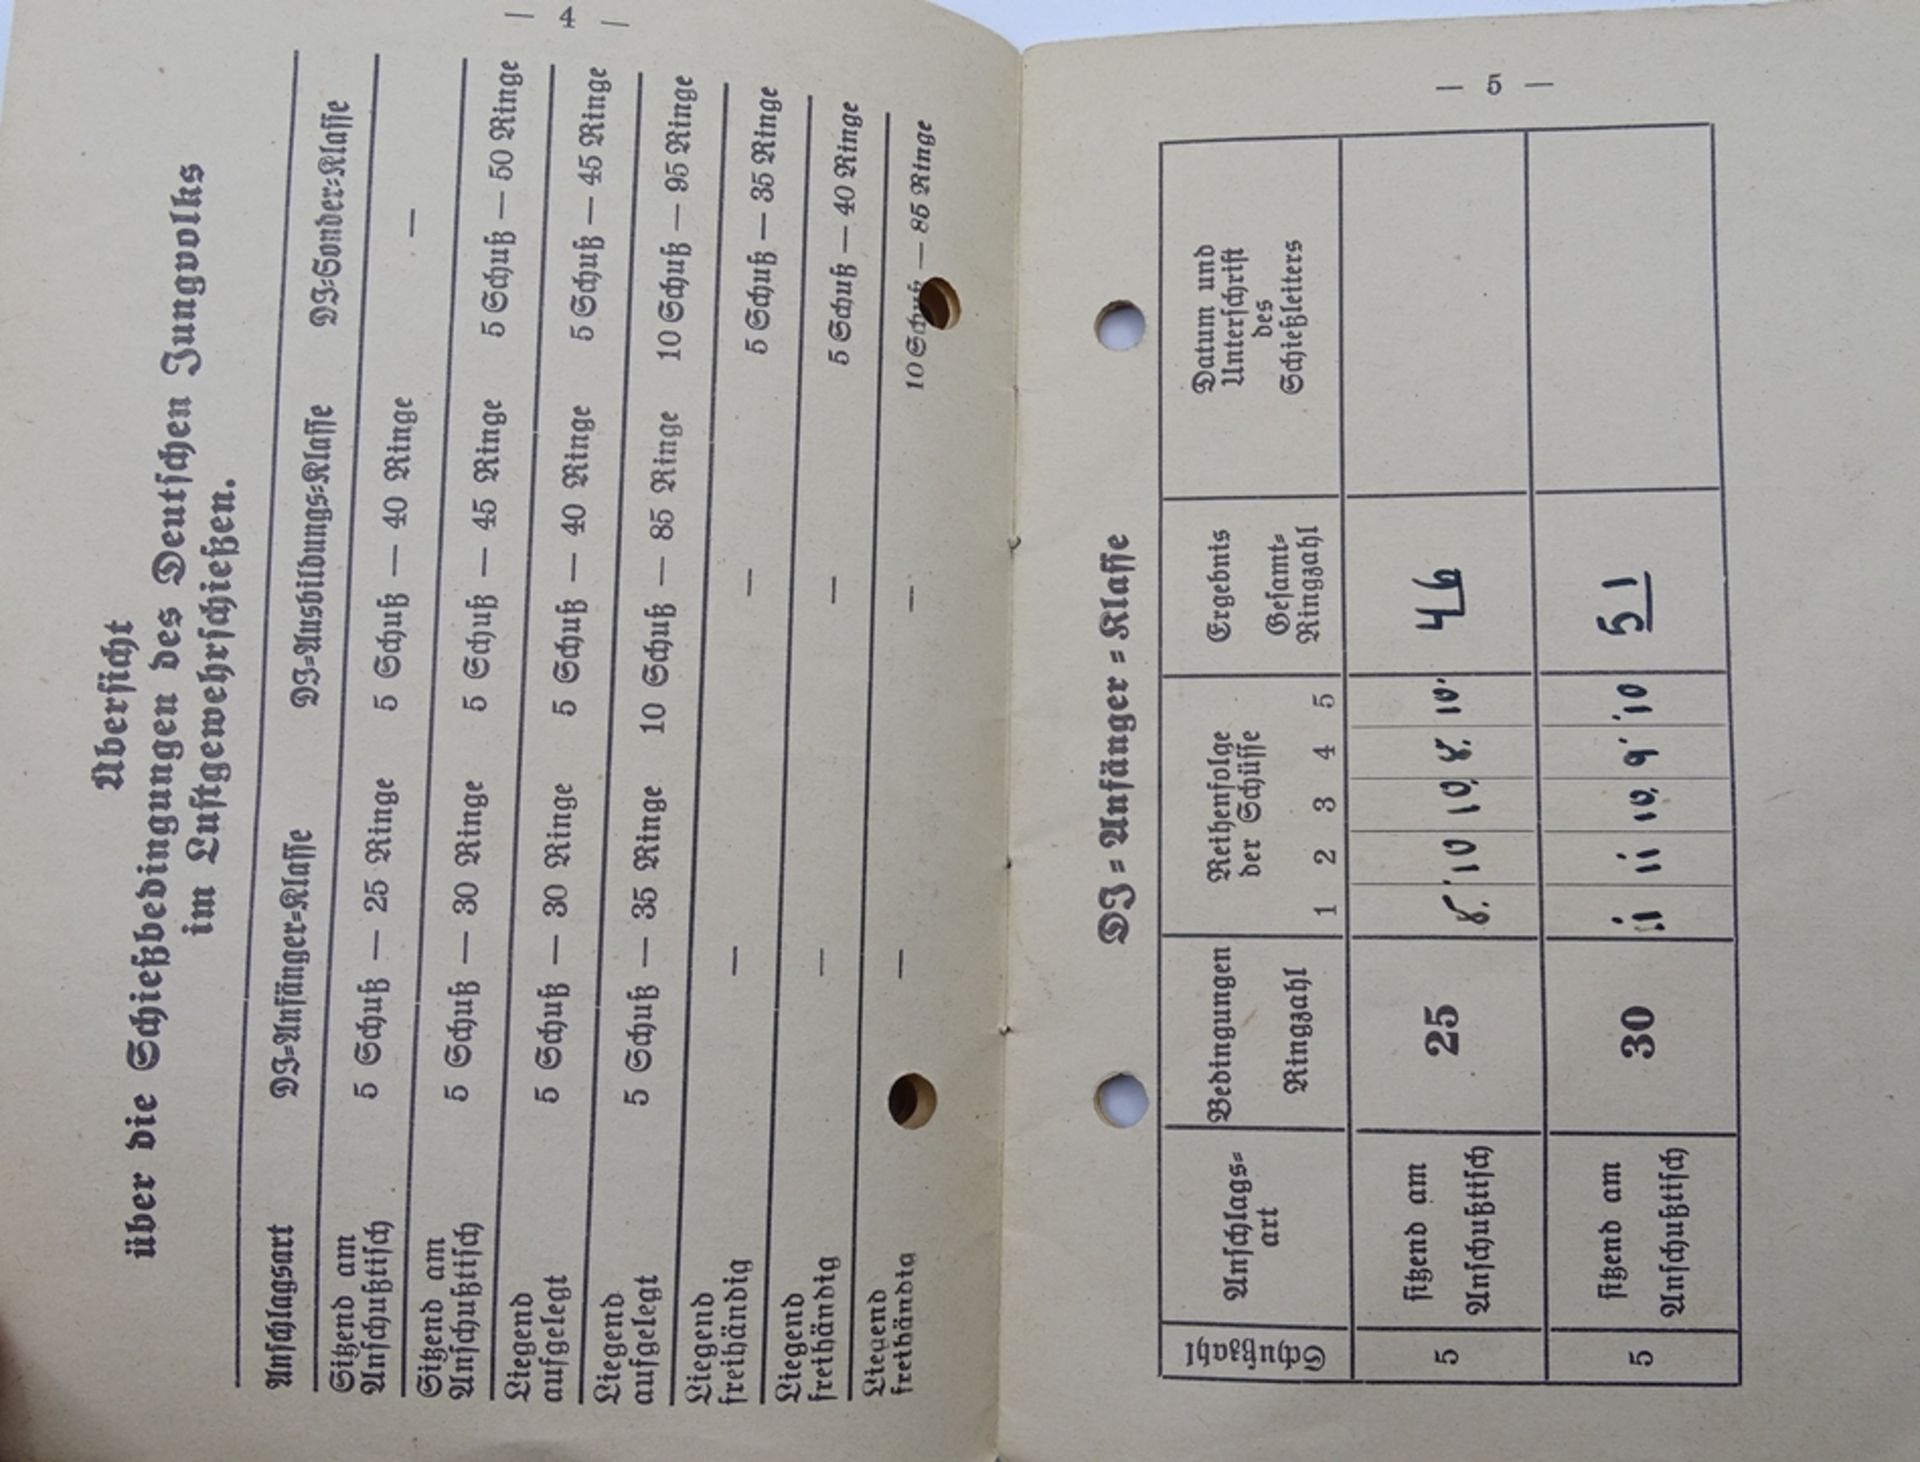 — 4 —
Übersicht
über die Schießbedingungen des Deutschen Jungvolks
im Luftgewehrschießen.
Anschlagsart DJ=Anfänger=Klasse DJ=Ausbildungs=Klasse DJ=Sonder=Klasse
Sitzend am
Anschußtisch 5 Schuß — 25 Ringe 5 Schuß — 40 Ringe —
Sitzend am
Anschußtisch 5 Schuß — 30 Ringe 5 Schuß — 45 Ringe 5 Schuß — 50 Ringe
Liegend
aufgelegt 5 Schuß — 30 Ringe 5 Schuß — 40 Ringe 5 Schuß — 45 Ringe
Liegend
aufgelegt 5 Schuß — 35 Ringe 10 Schuß — 85 Ringe 10 Schuß — 95 Ringe
Liegend
freihändig — — 5 Schuß — 35 Ringe
Liegend
freihändig — — 5 Schuß — 40 Ringe
Liegend
freihändig — — 10 Schuß — 85 Ringe
— 5 —
DJ = Anfänger = Klasse
Schußzahl
Anschlags=
art
Bedingungen
Ringzahl
Reihenfolge
der Schüsse
1 2 3 4 5
Ergebnis
Gesamt=
Ringzahl
Datum und
Unterschrift
des
Schießleiters
5 sitzend am
Anschußtisch 25 8. 10 10. 8. 10. 46
5 sitzend am
Anschußtisch 30 11 11 10. 9. 10 51